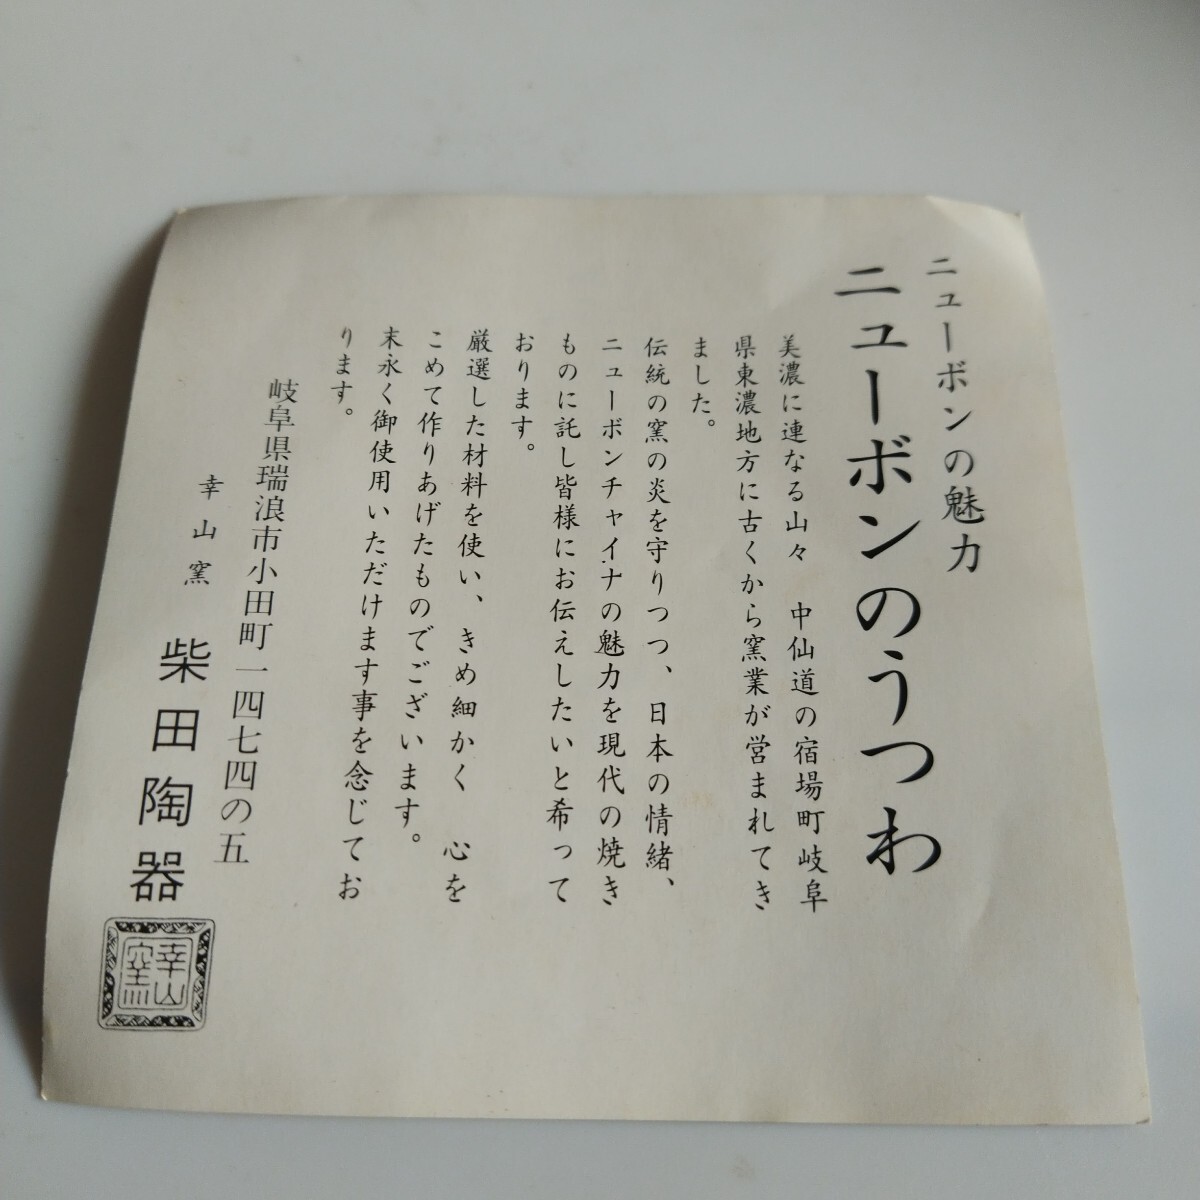 ニューボンの魅力
ニューボンのうつわ
美濃に連なる山々　中仙道の宿場町岐阜
県東濃地方に古くから窯業が営まれてき
ました。
伝統の窯の炎を守りつつ、日本の情緒、
ニューボンチャイナの魅力を現代の焼き
ものに託し皆様にお伝えしたいと希って
おります。
厳選した材料を使い、きめ細かく　心を
こめて作りあげたものでございます。
末永く御使用いただけます事を念じてお
ります。
岐阜県瑞浪市小田町一四七四の五
幸山窯　柴田陶器
幸山
窯